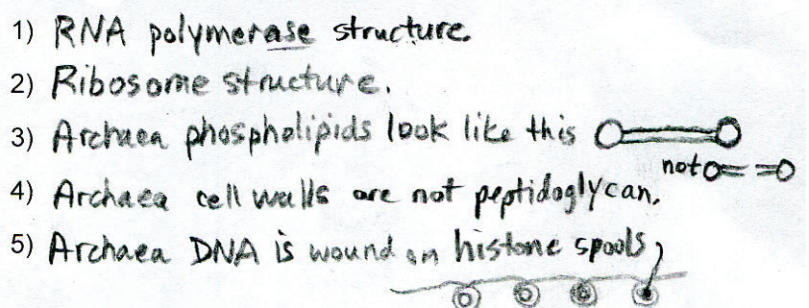 1) RNA polymerase structure.
2) Ribosome structure.
3) Archaea phospholipids look like this
not
4) Archaea cell walls are not peptidoglycan.
5) Archaea DNA is wound on histone spools,